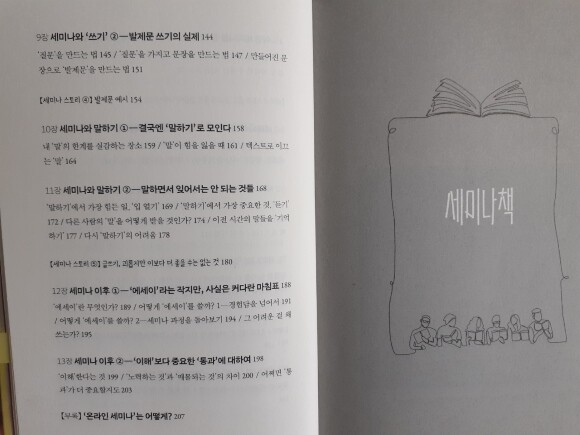 9장 세미나와 ‘쓰기’ ②—발제문 쓰기의 실제 144
‘질문’을 만드는 법 145 / ‘질문’을 가지고 문장을 만드는 법 147 / 만들어진 문
장으로 ‘발제문’을 만드는 법 151
【세미나 스토리 ④】 발제문 예시 154
10장 세미나와 말하기 ①—결국엔 ‘말하기’로 모인다 158
내 ‘말’의 한계를 실감하는 장소 159 / ‘말’이 힘을 잃을 때 161 / 텍스트로 이끄
는 ‘말’ 164
11장 세미나와 말하기 ②—말하면서 잊어서는 안 되는 것들 168
‘말하기’에서 가장 힘든 일, ‘입 열기’ 169 / ‘말하기’에서 가장 중요한 것, ‘듣기’
172 / 다른 사람의 ‘말’을 어떻게 받을 것인가? 174 / 이전 시간의 말들을 ‘기억
하기’ 177 / 다시 ‘말하기’의 어려움 178
【세미나 스토리 ⑤】 글쓰기, 괴롭지만 이보다 더 좋을 수는 없는 것 180
12장 세미나 이후 ①—‘에세이’라는 작지만, 사실은 커다란 마침표 188
‘에세이’란 무엇인가? 189 / 어떻게 ‘에세이’를 쓸까? 1—경험담을 넘어서 191
/ 어떻게 ‘에세이’를 쓸까? 2—세미나 과정을 돌아보기 194 / 그 어려운 걸 왜
쓰는가? 195
13장 세미나 이후 ②—‘이해’보다 중요한 ‘통과’에 대하여 198
‘이해’한다는 것 199 / ‘노력하는 것’과 ‘매몰되는 것’의 차이 200 / 어쩌면 ‘통
과’가 더 중요할지도 203
【부록】 ‘온라인 세미나’는 어떻게? 207
세미나책